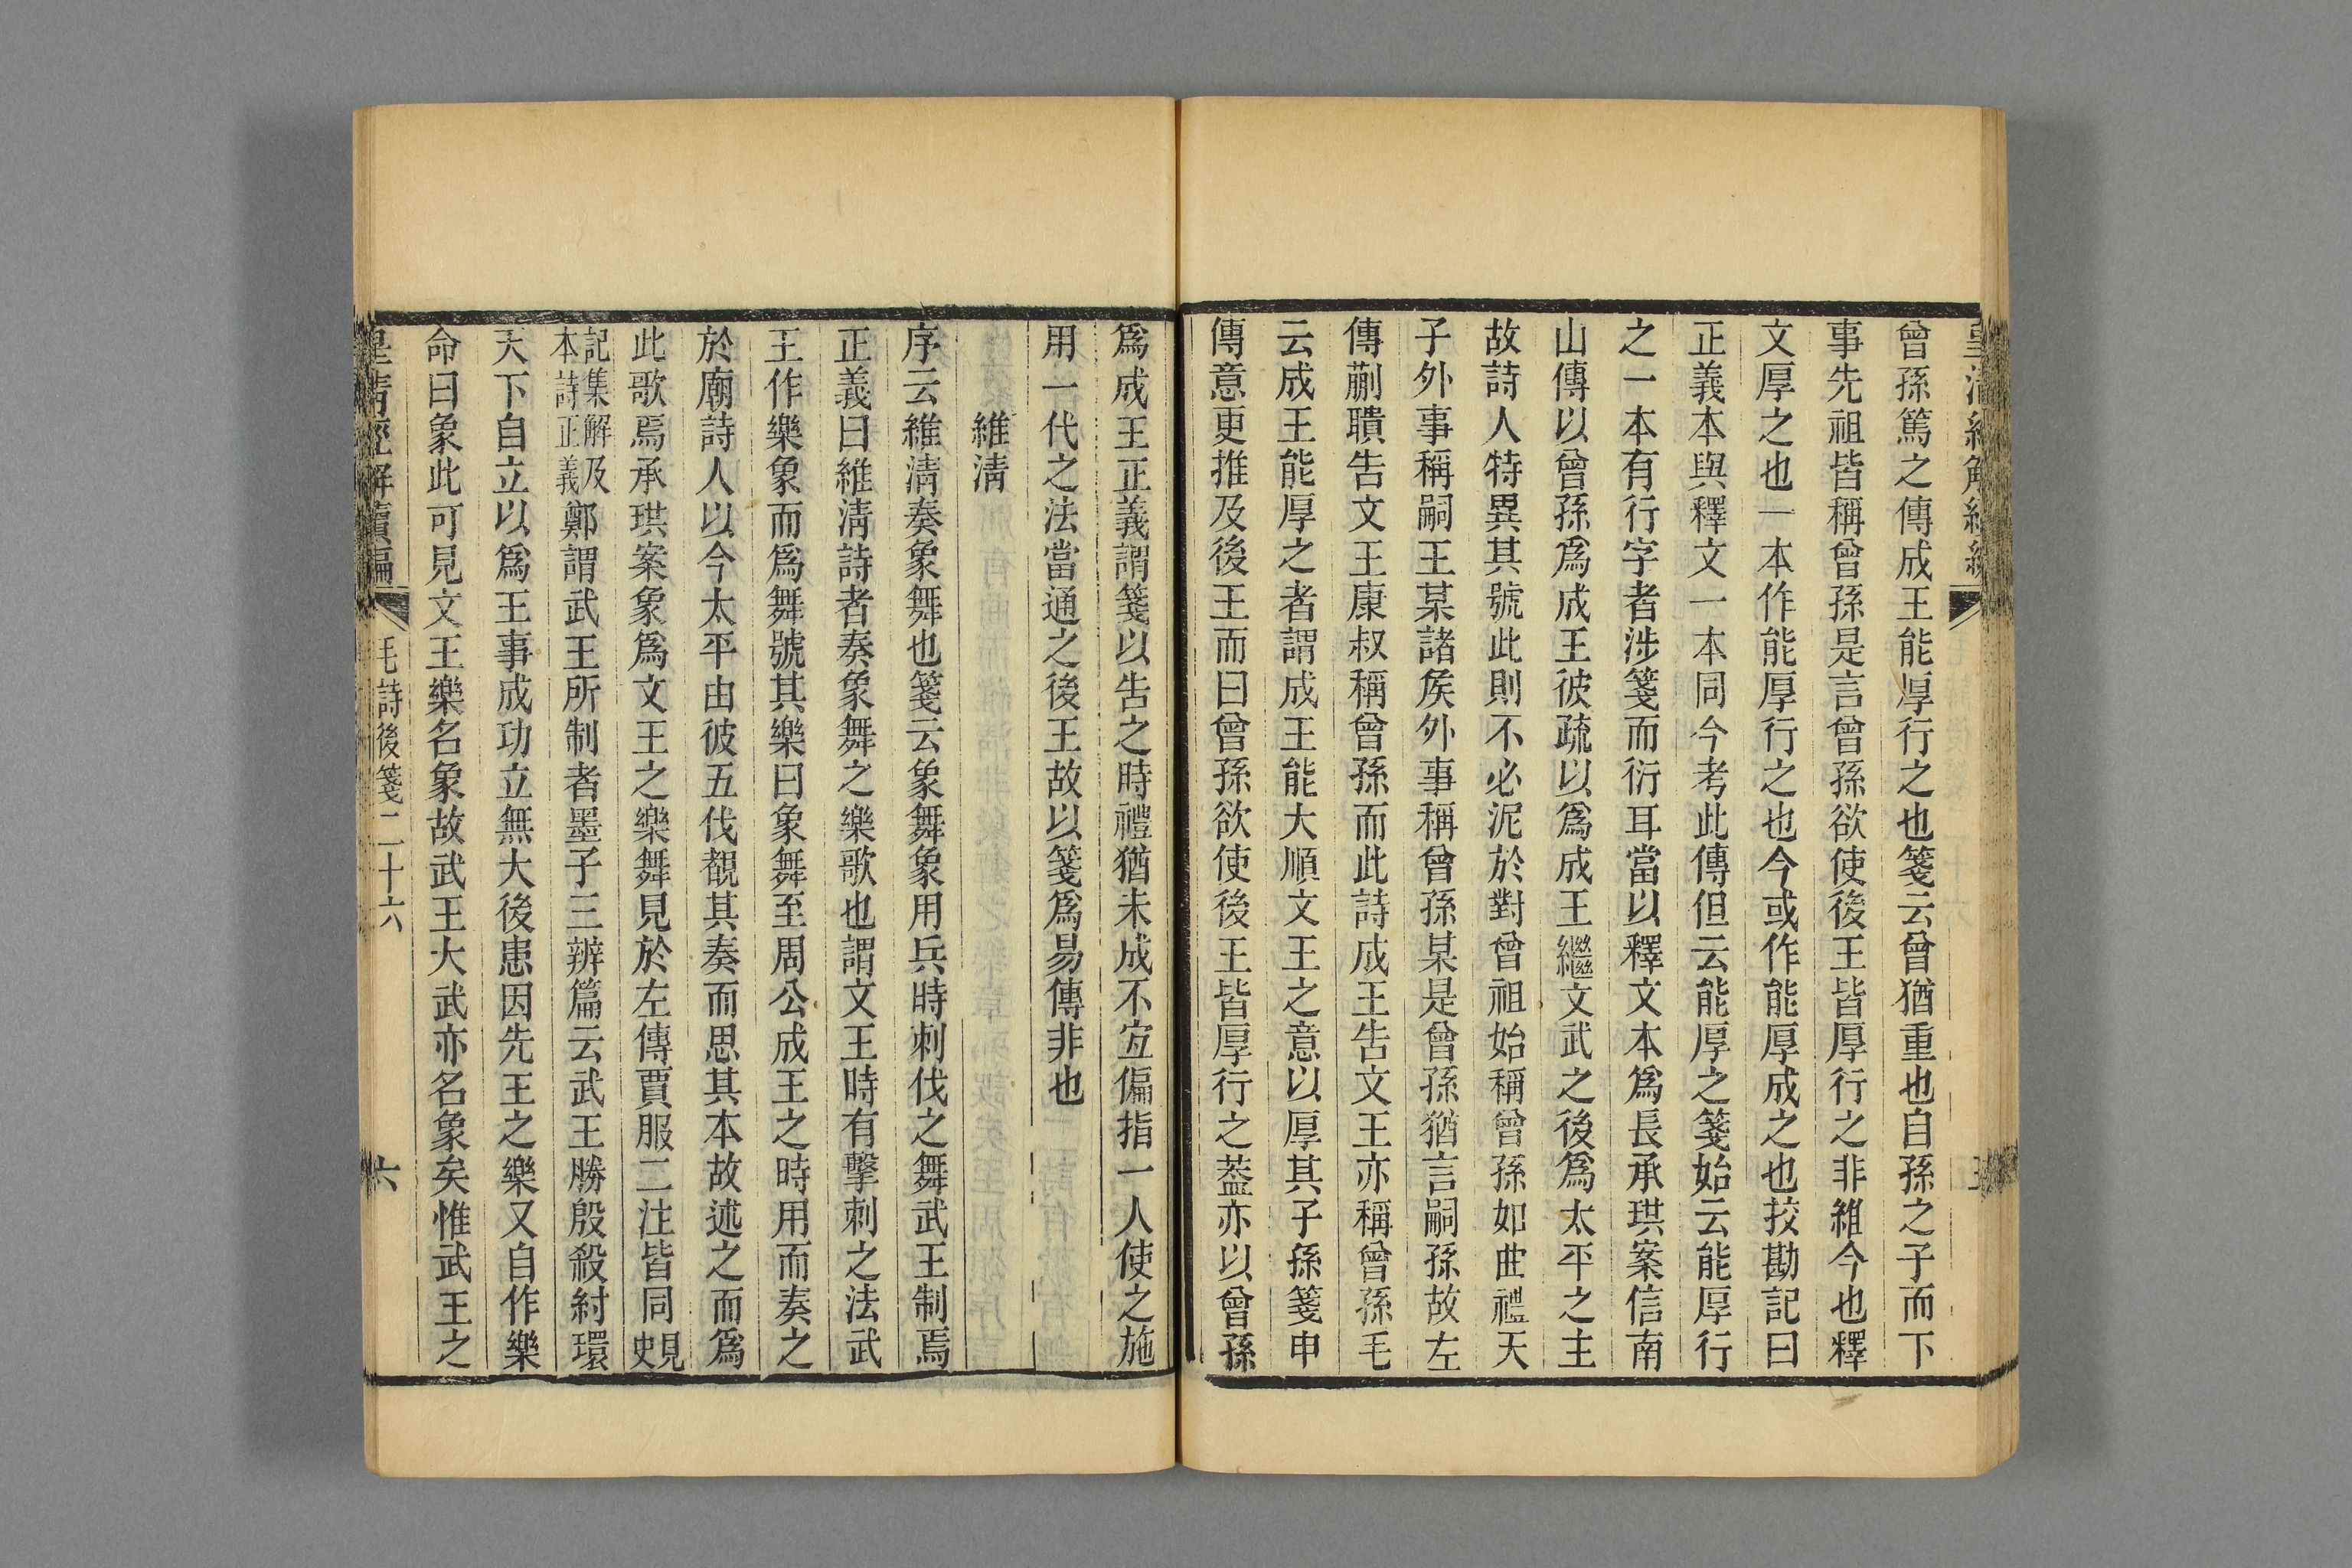 曾孫篤之傳成王能厚行之也箋云曾猶重也自孫之子而下
事先祖皆稱曾孫是言曾孫欲使後王皆厚行之非維今也釋
文厚之也一本作能厚行之也今或作能厚成之也挍勘記曰
正義本與釋文一本同今考此傳但云能厚之箋始云能厚行
之一本有行字者涉箋而衍耳當以釋文本爲長承珙案信南
山傳以曾孫爲成王彼疏以爲成王繼文武之後爲太平之主
故詩人特異其號此則不必泥於對曾祖始稱曾孫如曲禮天
子外事稱嗣王某諸矦外事稱曾孫某是曾孫猶言嗣孫故左
傳蒯聵告文王康叔稱曾孫而此詩成王告文王亦稱曾孫毛
云成王能厚之者謂成王能大順文王之意以厚其子孫箋申
傳意更推及後王而曰曾孫欲使後王皆厚行之葢亦以曾孫
爲成王正義謂箋以告之時禮猶未成不宐偏指一人使之施
用一代之法當通之後王故以箋爲易傳非也
維淸
序云維淸奏象舞也箋云象舞象用兵時刺伐之舞武王制焉
正義曰維淸詩者奏象舞之樂歌也謂文王時有擊刺之法武
王作樂象而爲舞號其樂曰象舞至周公成王之時用而奏之
於廟詩人以今太平由彼五伐覩其奏而思其本故述之而爲
此歌焉承珙案象爲文王之樂舞見於左傳賈服二注皆同見史
記集解及本詩正義鄭謂武王所制者墨子三辨篇云武王勝殷殺紂環
天下自立以爲王事成功立無大後患因先王之樂又自作樂
命曰象此可見文王樂名象故武王大武亦名象矣惟武王之
皇淸經解續編
毛詩後箋二十六
六